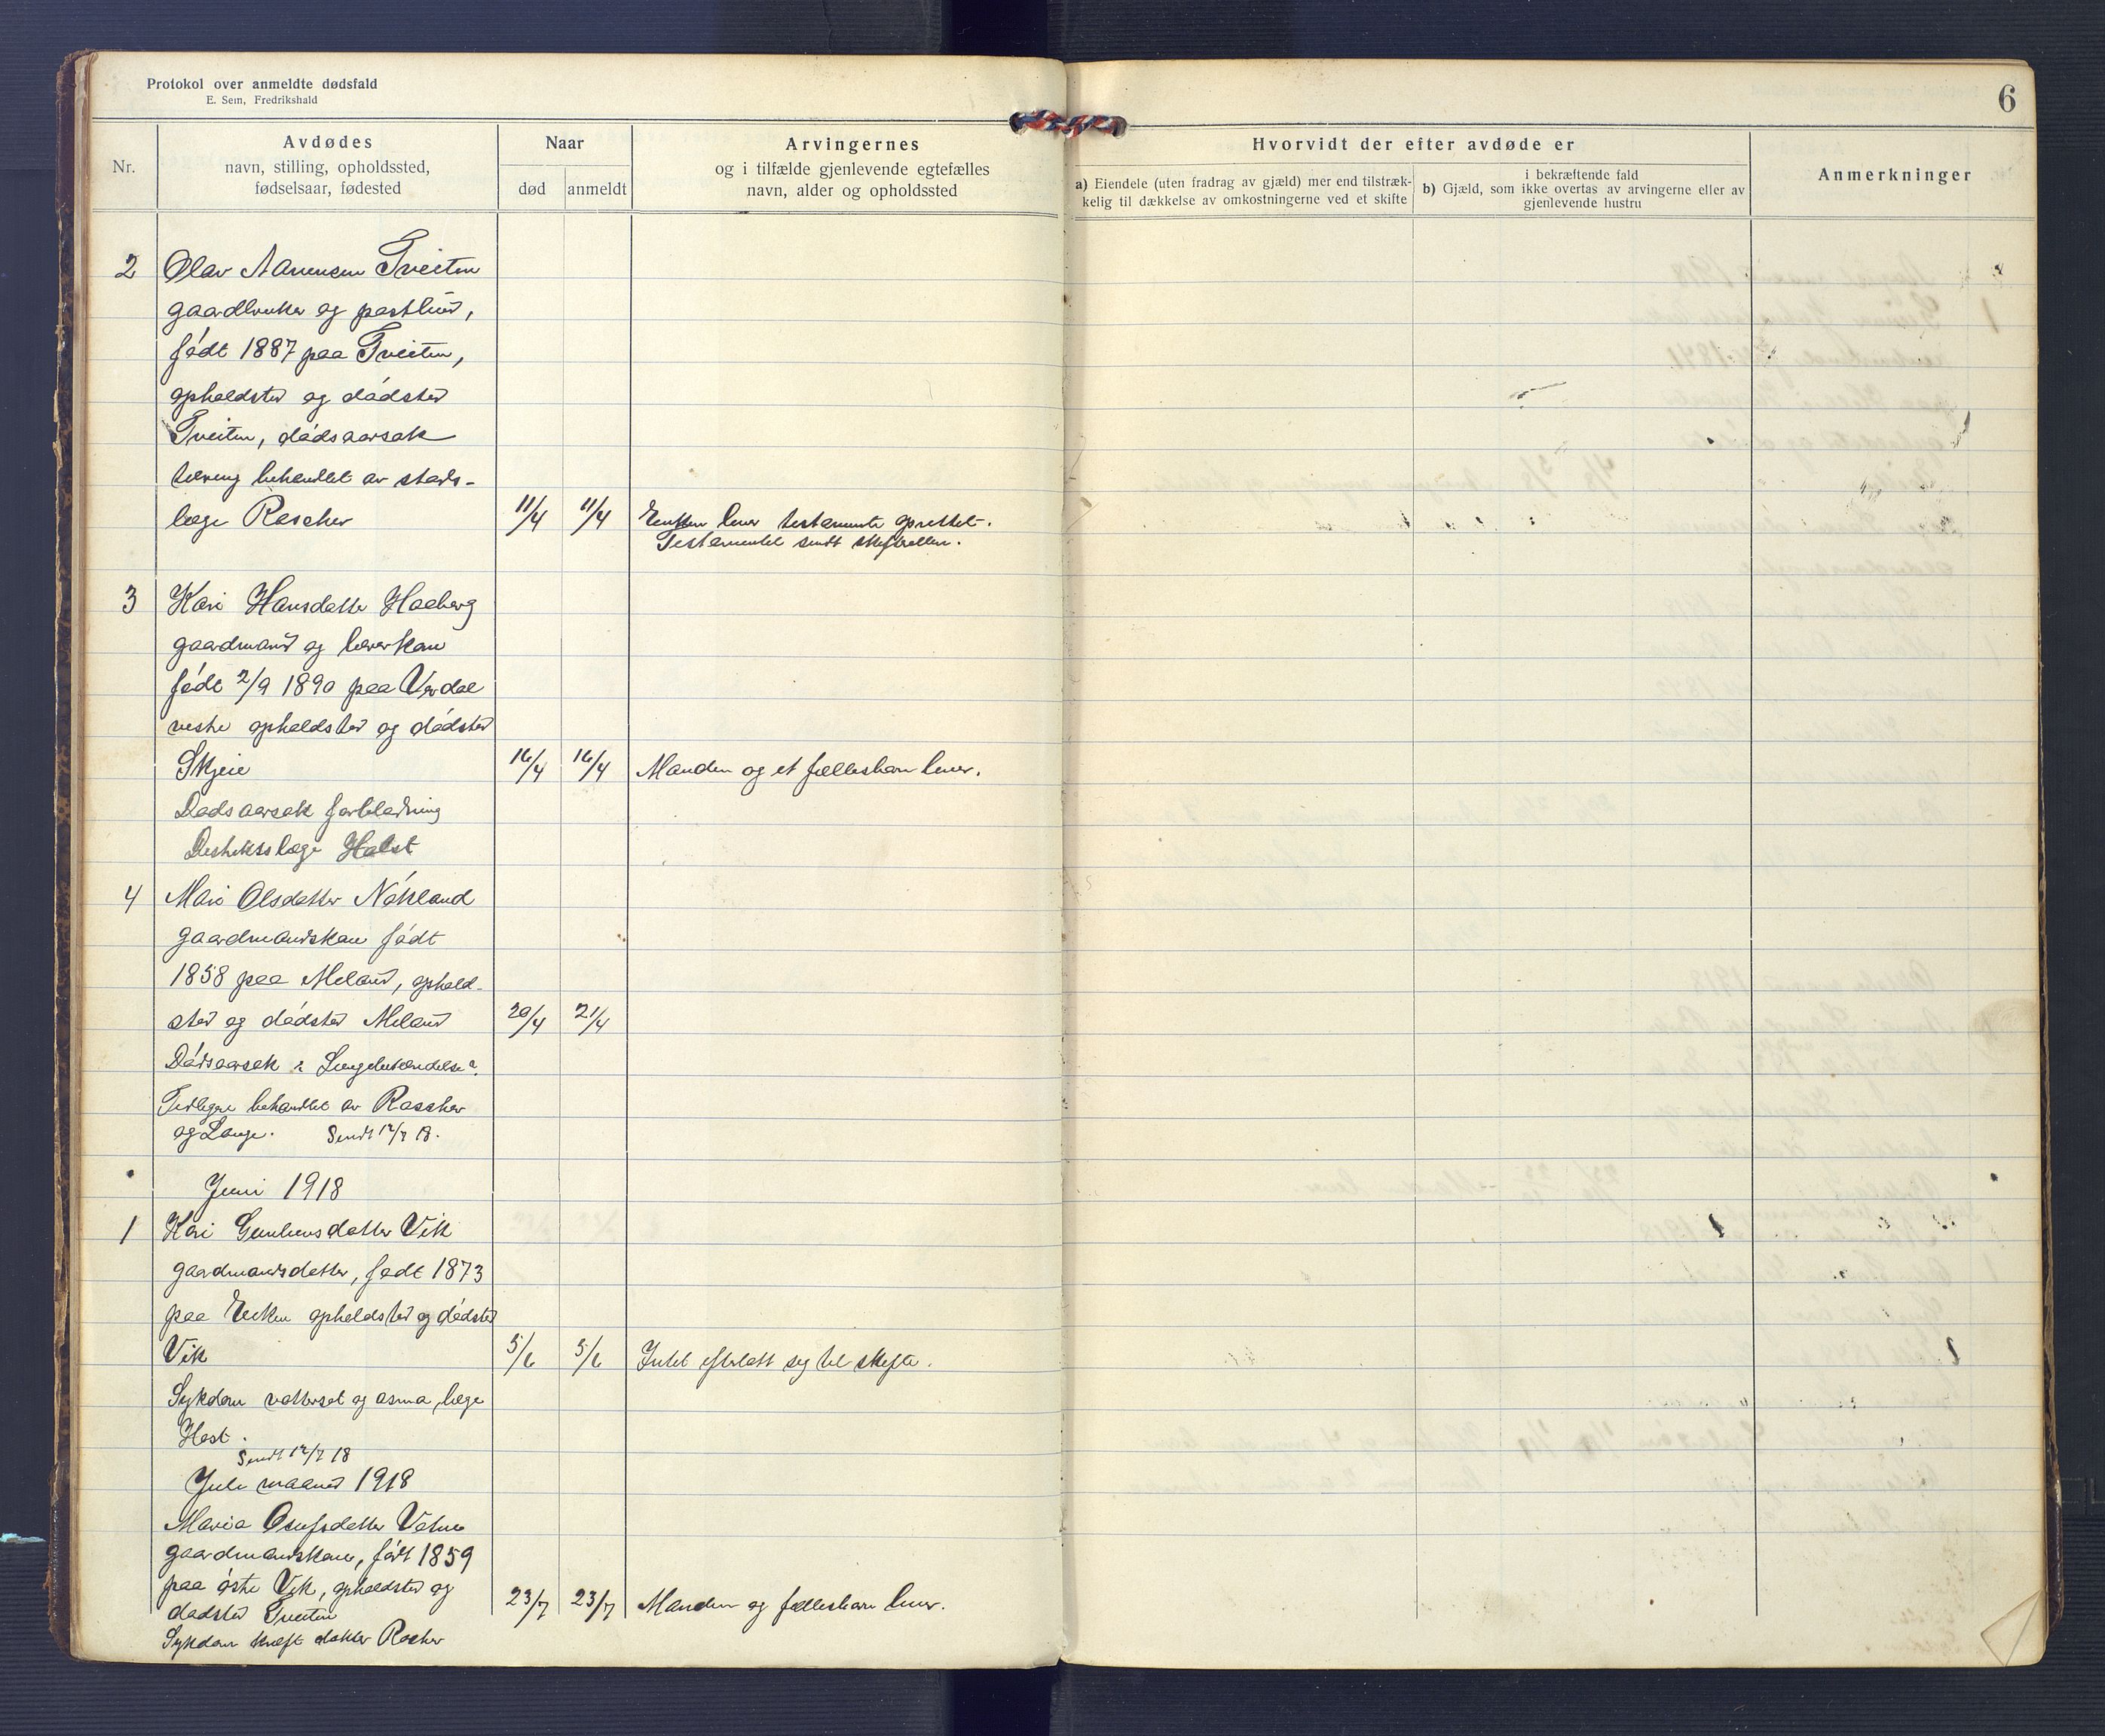 Protokol over anmeldte dødsfald
E. Sem, Fredrikshald
6
Nr.
Avdødes
navn, stilling, opholdssted,
fødselsaar, fødested
Naar
død
anmeldt
Arvingernes
og i tilfælde gjenlevende egtefælles
navn, alder og opholdssted
Hvorvidt der efter avdøde er
a) Eiendele (uten fradrag av gjæld) mer end tilstræk-
kelig til dækkelse av omkostningerne ved et skifte
i bekræftende fald
b) Gjæld, som ikke overtas av arvingerne eller av
gjenlevende hustru
Anmerkninger
2 Olav Aanensen Tveiten
gaardbruker og
født 1887 paa Tveiten,
opholdsted og dødsted
Tveiten, dødsaarsak
tæring behandlet av stads-
læge Rascher 11/4 11/4 Enken lever testamente oprettet.
Testamentet sendt skifteretten.
3 Kari Hansdatter Haaberg
gaardmand og
født 2/9 1890 paa
vestre opholdsted og dødsted
Skjeie 16/4 16/4 Manden og et fællesbarn lever.
Dødsaarsak forblødning
Distriktslæge Holst
4 Mari Olsdatter Nøkland
gaardmandskone født
1858 paa Meland, ophold-
sted og dødsted Meland 20/4 21/4
Dødsaarsak: Lungebetændelse.
Tidligere behandlet av Rascher
og Lange. Sendt 12/7 18.
Juni 1918
1 Kari Gunleivsdatter Vik
gaardmandsdatter, født 1873
paa opholdsted og dødsted
Vik 5/6 5/6 Intet efterlatt sig til skifte.
Sykdom vattersot og asma, læge
Sendt 12/7 18
Juli maaned 1918
Maria Osufsdatter Vatne
gaardmandskone, født 1859
paa østre Vik, opholdsted og
dødsted Tveiten 23/7 23/7 Manden og fællesbarn lever.
Sykdom kræft doktor Rascher